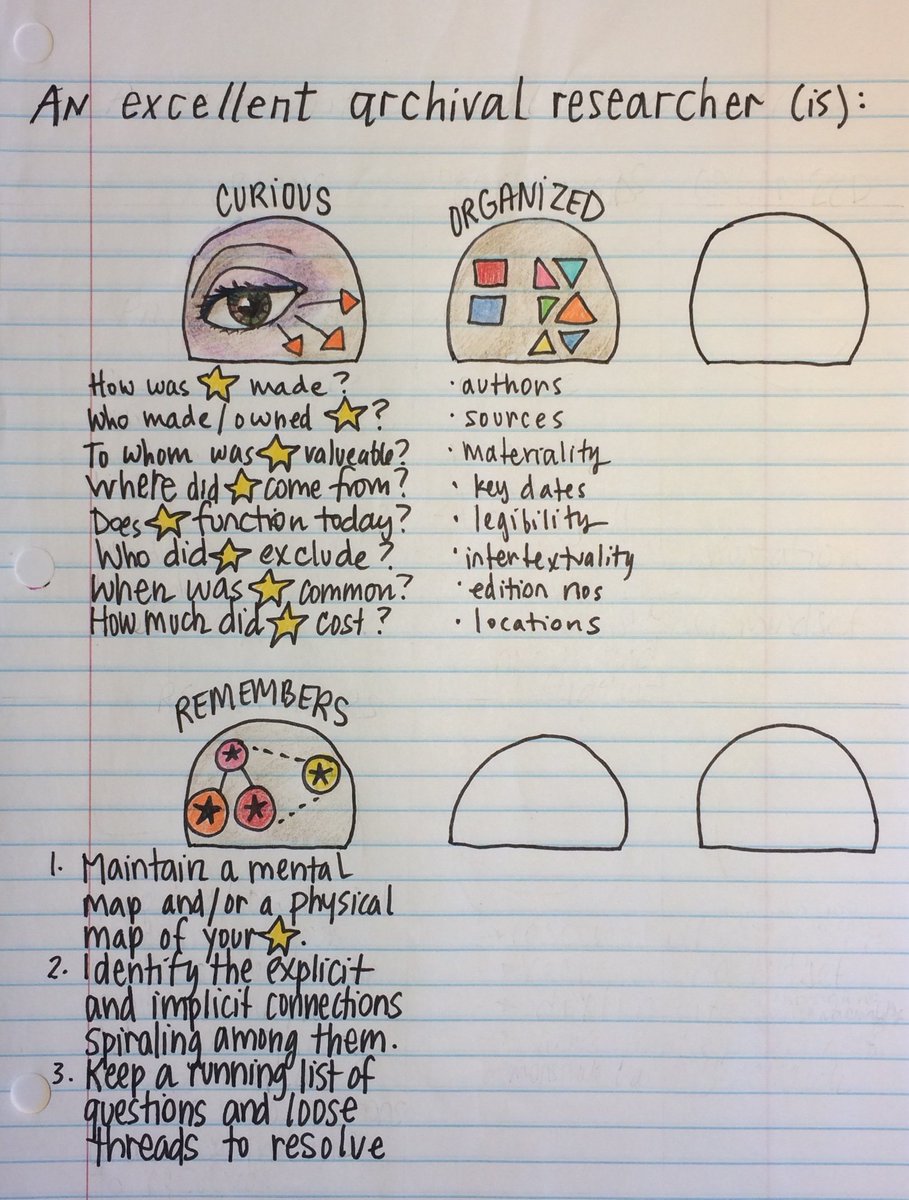 AN excellent archival researcher (is):
CURIOUS
How was ⭐ made?
Who made/owned ⭐?
To whom was ⭐ valueable?
Where did ⭐ come from?
Does ⭐ function today?
Who did ⭐ exclude?
When was ⭐ common?
How much did ⭐ cost?
ORGANIZED
· authors
· sources
· materiality
· key dates
· legibility
· intertextuality
· edition nos
· locations
REMEMBERS
1. Maintain a mental
map and/or a physical
map of your ⭐.
2. Identify the explicit
and implicit connections
spiraling among them.
3. Keep a running list of
questions and loose
threads to resolve